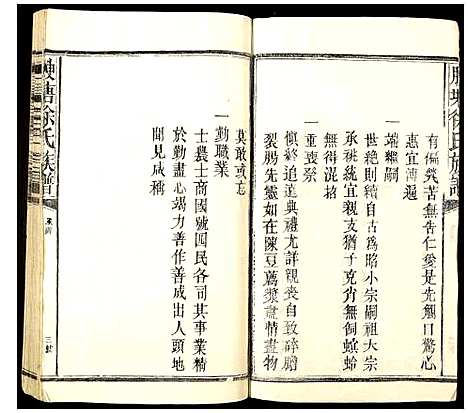 有偏災苦無告仁愛是先觸口驚心
惠宜溥遍
一端繼嗣
世系攸關自古爲昭小宗嗣祖大宗
承祧統宜親支猶子克肖無飼蜾蛉
無得混招
一重喪祭
慎終追遠典禮尤詳親喪自致碎膽
裂腸先靈如在陳豆薦漿盡情盡物
莫敢或忘
一勤職業
士農士商國號四民各司其事業精
於勤盡心竭力善作善成出人頭地
聞見咸稱
徐氏族譜